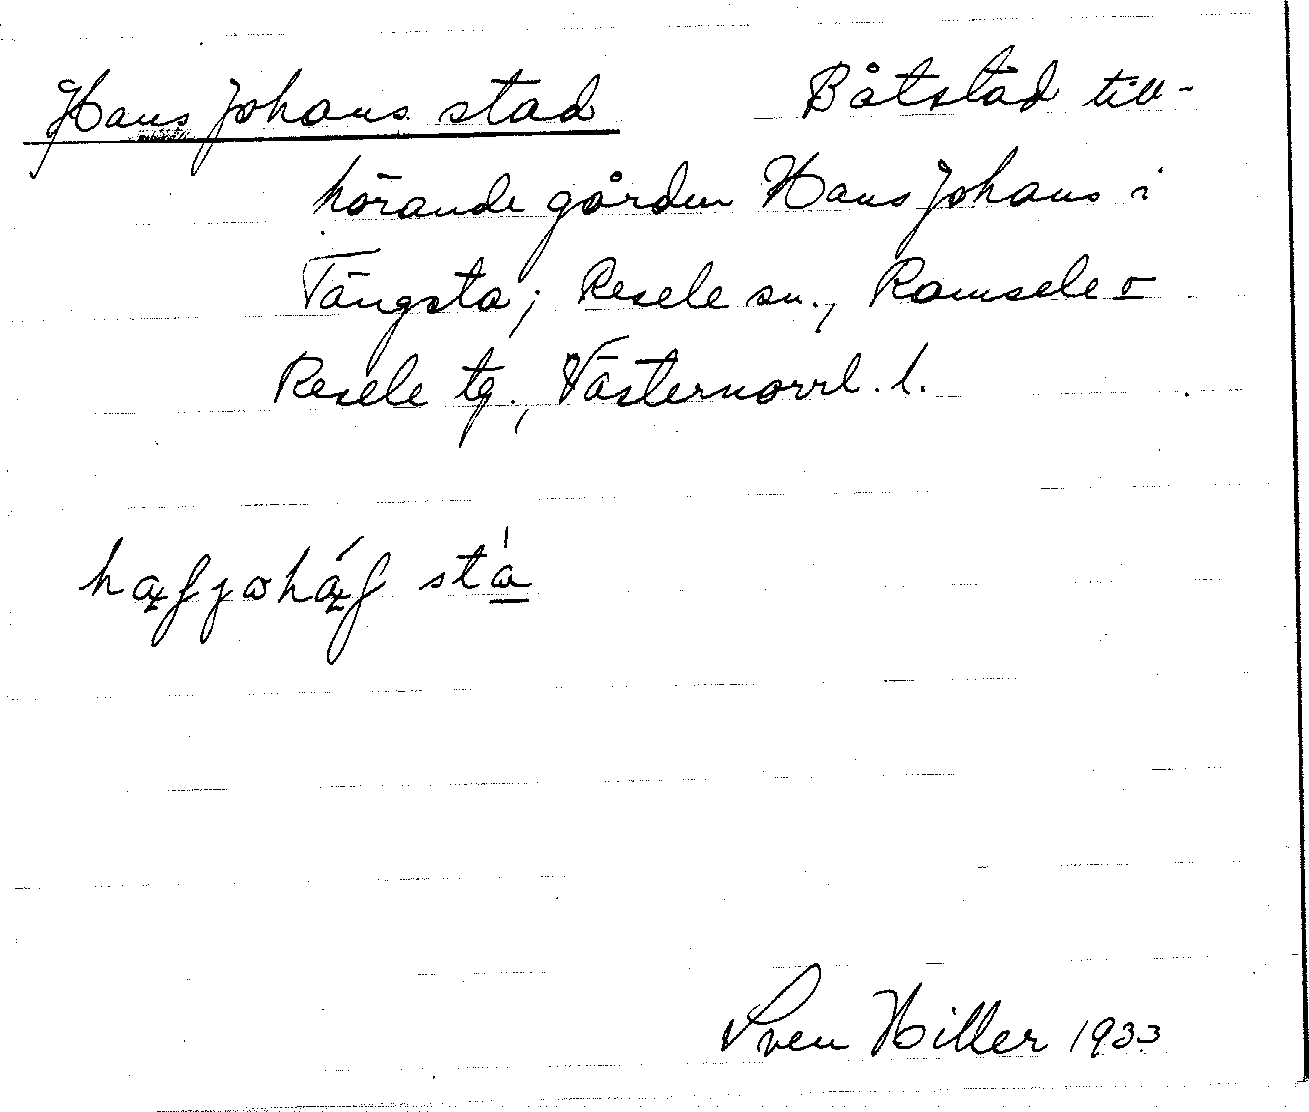 Hans Johans stad Båtstad till-
hörande gården Hans Johans i
Tängsta; Resele sn., Ramsele o
Resele tg., Västernorrl. l.
stá
Sven Hiller 1933